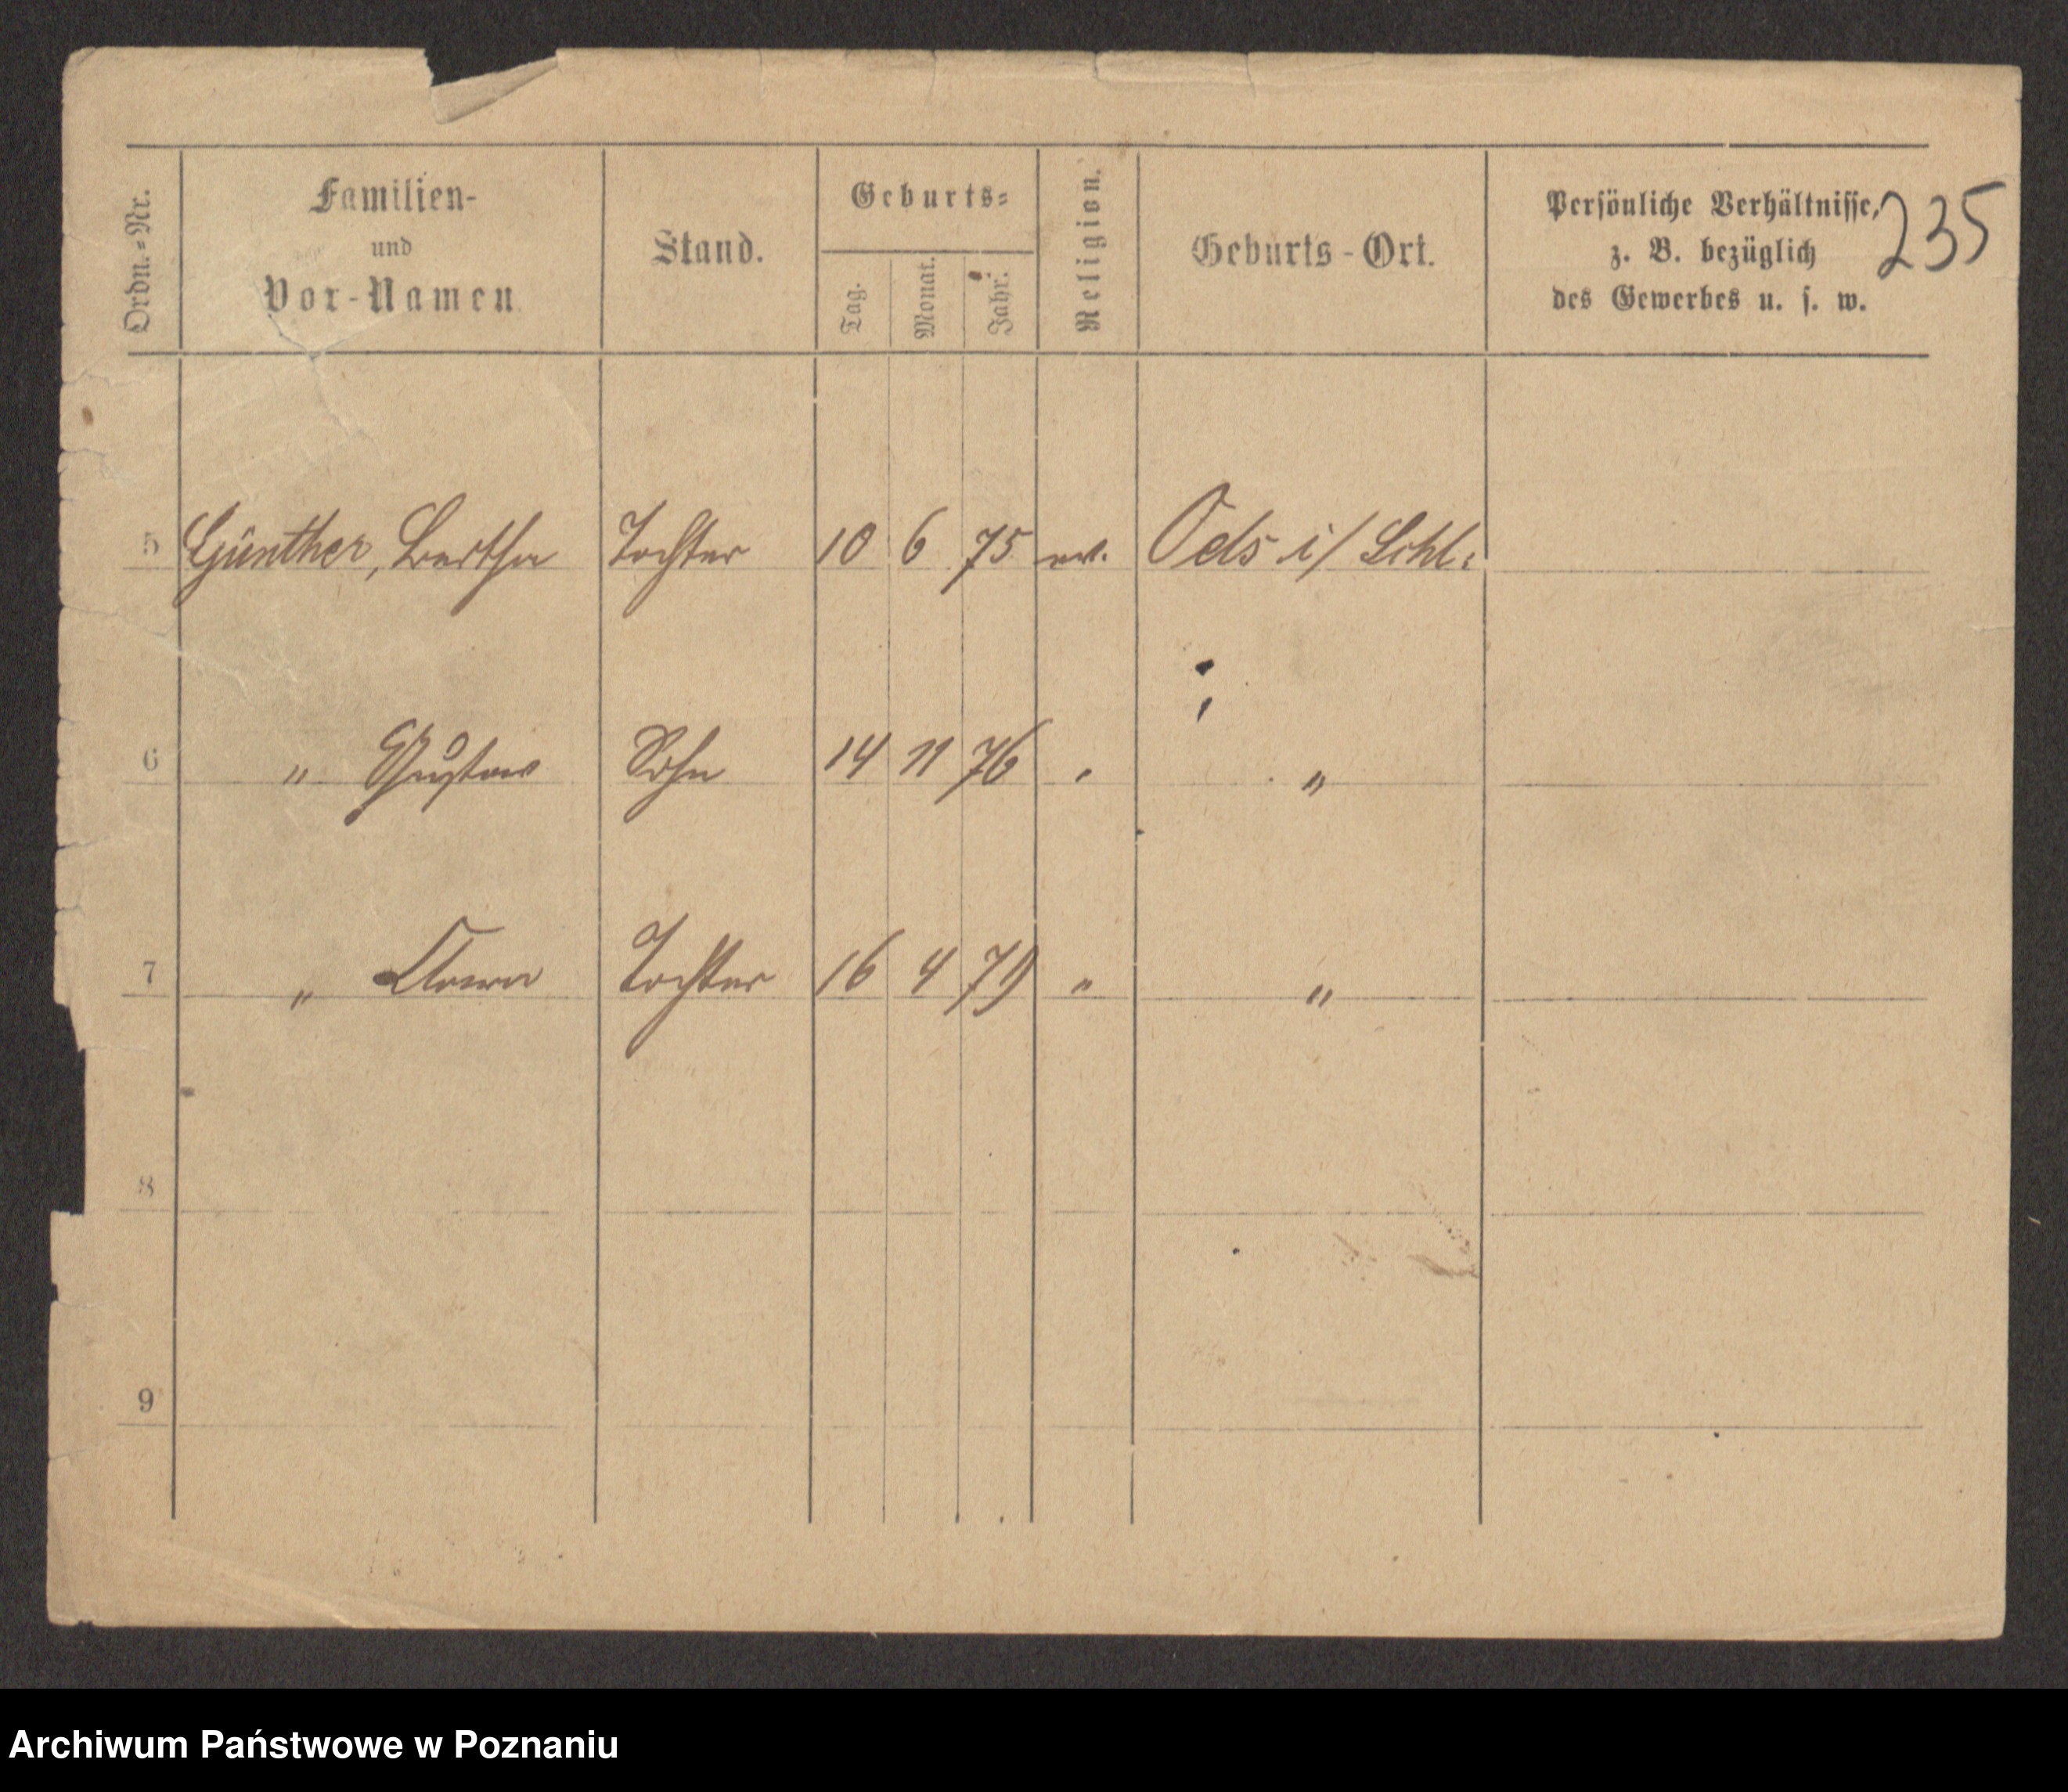 Ordn.-Nr.
Familien-
und
Vor-Namen
Stand.
Geburts-
Tag.
Monat.
Jahr.
Religion.
Geburts-Ort.
Persönliche Verhältnisse,
z. B. bezüglich
des Gewerbes u. s. w.
235
5 Günther, Bertha Tochter 10 6 75 ev. Oels i/ Schl:
6 " Gustav Sohn 14 11 76 " "
7 " Clara Tochter 16 4 79 " "
8
9
Archiwum Państwowe w Poznaniu